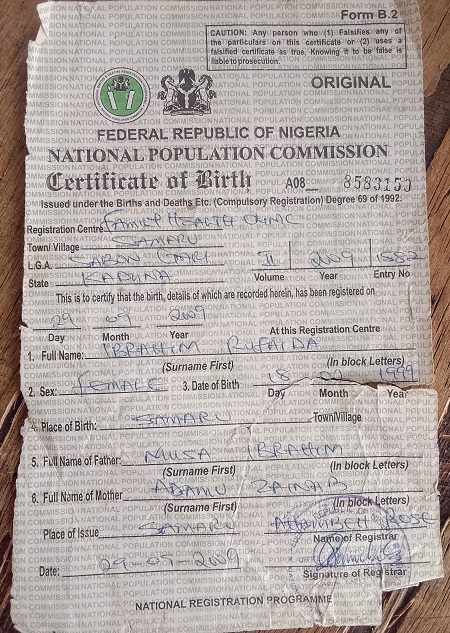 Form B.2
CAUTION: Any person who (1) Falsifies any of
the particulars on this certificate or (2) uses a
falsified certificate as true, Knowing it to be false is
liable to prosecution.
ORIGINAL
FEDERAL REPUBLIC OF NIGERIA
NATIONAL POPULATION COMMISSION
Certificate of Birth A08
Issued under the Births and Deaths Etc. (Compulsory Registration) Degree 69 of 1992.
Registration Centre FAMILY HEALTH CLINIC
Town/Village SAMARU
L.G.A. SABON GARI II 2009 1882
State KADUNA Volume Year Entry No
This is to certify that the birth, details of which are recorded herein, has been registered on
29 09 2009
Day Month Year At this Registration Centre
1. Full Name: IBRAHIM RUFAIDA
(Surname First) (In block Letters)
2. Sex: FEMALE 3. Date of Birth 18 02 1999
Day Month Year
4. Place of Birth: SAMARU Town/Village
5. Full Name of Father: MUSA IBRAHIM
(Surname First) (In block Letters)
6. Full Name of Mother ADAMU ZAINAB
(Surname First) (In block Letters)
Place of Issue SAMARU ROSE
Name of Registrar
Date: 29-09-2009
Signature of Registrar
NATIONAL REGISTRATION PROGRAMME